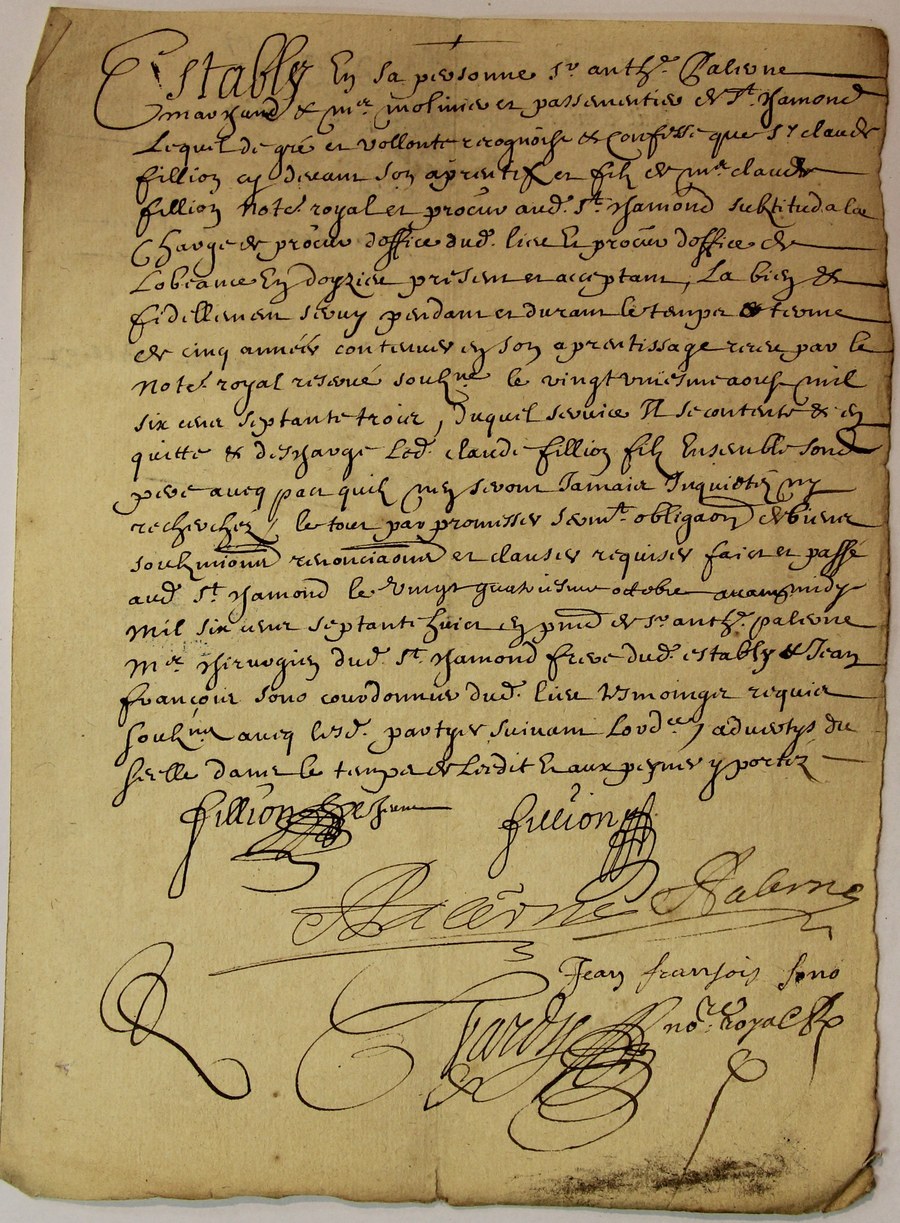 Estably En sa personne Sr anthe. Palerne
marchand & mer molinier et passementier de St. chamond
Lequel de gré et vollonte recognoist & confesse que Sr claude
fillion cy devant son aprentif et filz de mre claude
fillion notre. royal et procur aud. St. chamond substitud a la
Charge de procur d'office dud. lieu Et procur d'office de
L'obeance En doyzieu present et acceptant, La bien &
fidellement servy pendant et durant le temps & terme
de cinq années contenues en son aprentissage receu par le
notre. royal reservé soubzne le vingt uniesme aoust mil
six cens septante trois, duquel service Il se contente & en
quitte & descharge Led. claude fillion filz Ensemble sond
pere avecq pact quilz n'en seront Jamais Inquietéz ny
recherchez, le tout par promisses sermt. obligaons de biens
soubzmions renonciaons et clauses requises faict et passé
aud. St. chamond le vingt quatriesme octobre avant midy
Mil six cens septante huict en pnce de Sr anthe. palerne
Mre chirurgien dud. St. chamond frere dud. estably & Jean
françois sono courdonnier dud. lieu tesmoingz requis
soubzne avecq lesd. partyes suivant L'ordce, advertys du
seelle dans le temps de L'esdit Et aux peynes y portéz
fillion le Jeune fillion
Palerne Palerne
Jean fransois sono
Tardy nore. royal